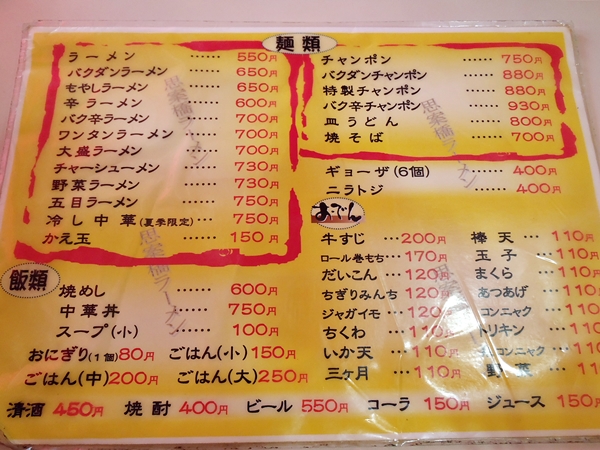 麺類
ラーメン ‥‥‥ 550円
バクダンラーメン ‥‥‥ 650円
もやしラーメン ‥‥‥ 650円
辛ラーメン ‥‥‥ 600円
バク辛ラーメン ‥‥‥ 700円
ワンタンラーメン ‥‥‥ 700円
大盛ラーメン ‥‥‥ 700円
チャーシューメン ‥‥‥ 730円
野菜ラーメン ‥‥‥ 730円
五目ラーメン ‥‥‥ 750円
冷し中華(夏季限定)‥‥ 750円
かえ玉 ‥‥‥ 150円
チャンポン ‥‥‥ 750円
バクダンチャンポン ‥‥‥ 880円
特製チャンポン ‥‥‥ 880円
バク辛チャンポン ‥‥‥ 930円
皿うどん ‥‥‥ 800円
焼そば ‥‥‥ 700円
ギョーザ(6個) ‥‥‥ 400円
ニラトジ ‥‥‥ 400円
飯類
焼めし ‥‥‥ 600円
中華丼 ‥‥‥ 750円
スープ(小) ‥‥‥ 100円
おにぎり(1個)80円 ごはん(小)150円
ごはん(中)200円 ごはん(大)250円
おでん
牛すじ ‥‥ 200円
ロール巻もち ‥‥ 170円
だいこん ‥‥ 120円
ちぎりみんち 120円
ジャガイモ ‥‥ 120円
ちくわ ‥‥ 110円
いか天 ‥‥ 110円
三ヶ月 ‥‥ 110円
棒天 ‥‥ 110円
玉子 ‥‥ 110円
まくら ‥‥ 110円
あつあげ ‥‥ 110円
コンニャク ‥‥ 110円
トリキン ‥‥ 110円
コンニャク ‥‥ 110円
野菜 ‥‥ 110円
清酒 450円 焼酎 400円 ビール 550円 コーラ 150円 ジュース 150円
思案橋ラーメン
思案橋ラーメン
思案橋ラーメン